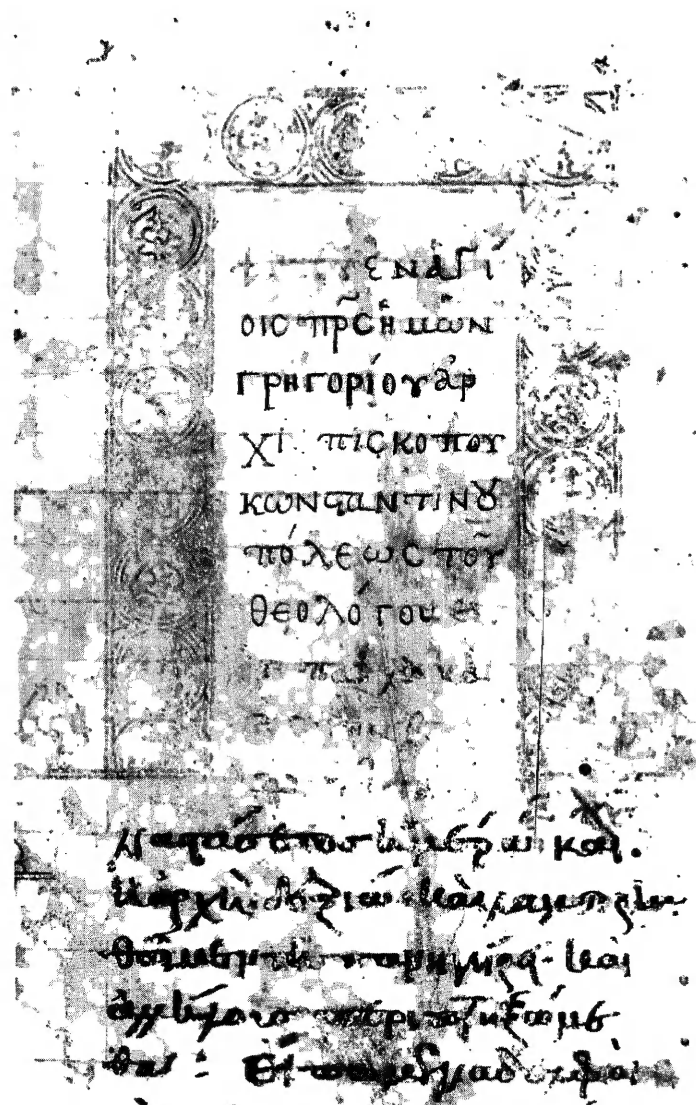 ἐν ἁγί
οις πρ̃ς ἡμῶν
γρηγορίου ἀρ
χι πισκοπου
κωνϛαντινȣ
πόλεως τοῦ
θεολόγου
πασχα
ἀναϛάσεως ἡμέρα καὶ
ἡ ἀρχὴ δεξιὰ καὶ λαμπρυν
θῶμεν τῇ πανηγύρει καὶ
ἀλλήλους περιπτυξώμε
θα : Εἴπωμεν ἀδελφοὶ